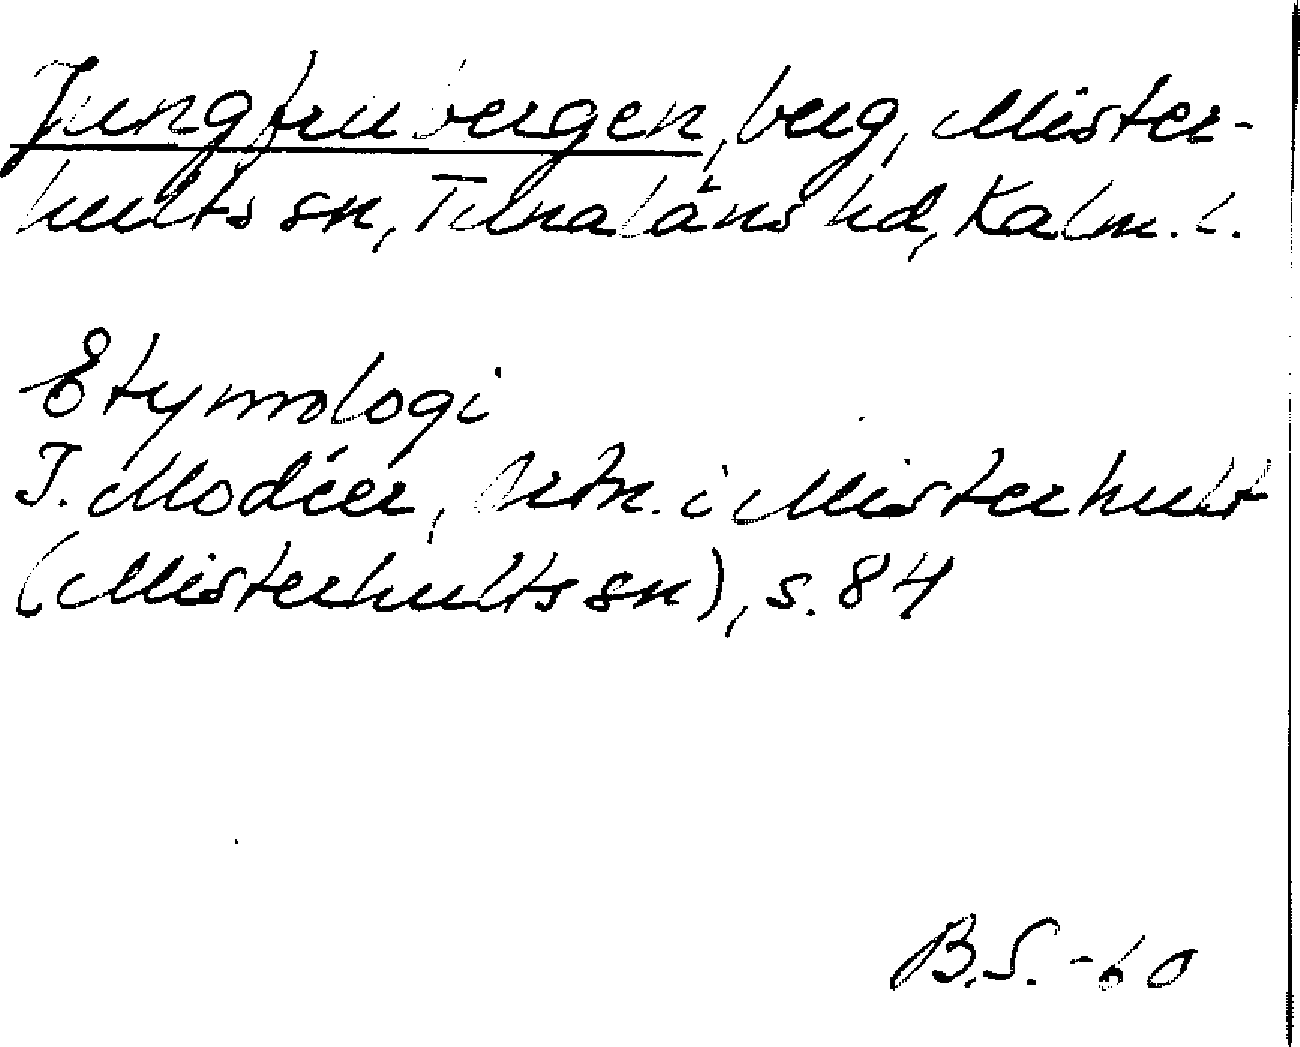 Jungfrubergen, berg, Mister-
hults sn, Tunaläns hd, Kalm. l.
Etymologi
I. Modéer, Ortn. i Misterhult
(Misterhults sn), s. 84
B.S. -60